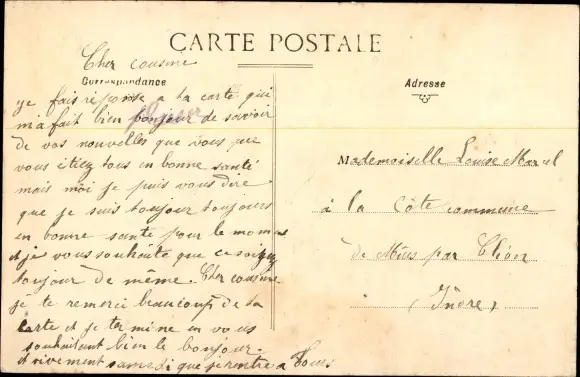 CARTE POSTALE
Cher cousine
Correspondance
Adresse
je fais réponse a la carte qui
m'a fait bien bonjour de savoir
de vos nouvelles que vous que
vous étiez tous en bonne santé
mais moi je puis vous dire
que je suis toujour toujours
en bonne santé pour le moment
et je vous souhaite que ce soit
toujour de même. Cher cousine
je te remerci beaucoup de ta
carte et je termine en vous
souhaitant bien le bonjour.
et vivement samedi que je rentre a Tours
Mademoiselle Louise Marcel
à la Côte commune
de par Cléon
(Indre)